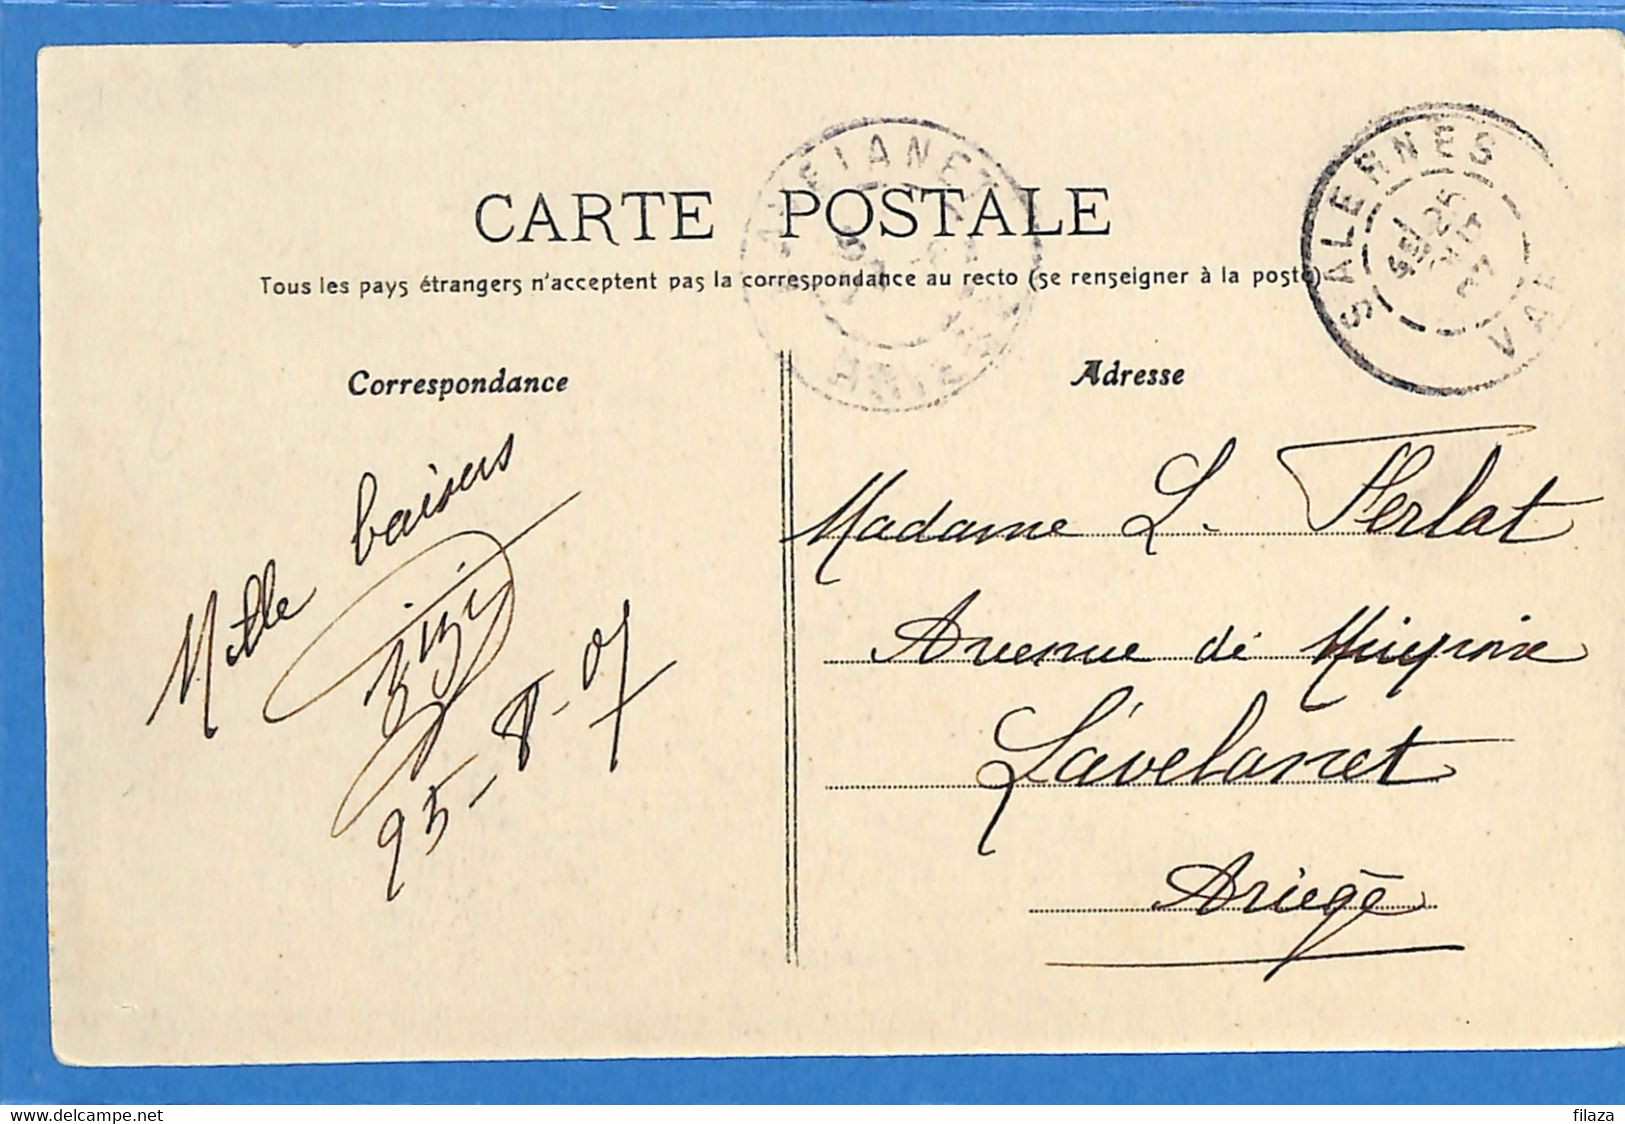 CARTE POSTALE
Tous les pays étrangers n'acceptent pas la correspondance au recto (se renseigner à la poste)
SALERNES
25
07
VAR
Correspondance
Mille baisers
Zizi
25-8-07
Adresse
Madame L. Ferlat
Avenue de
Lavelanet
Ariège
www.delcampe.net
filaza